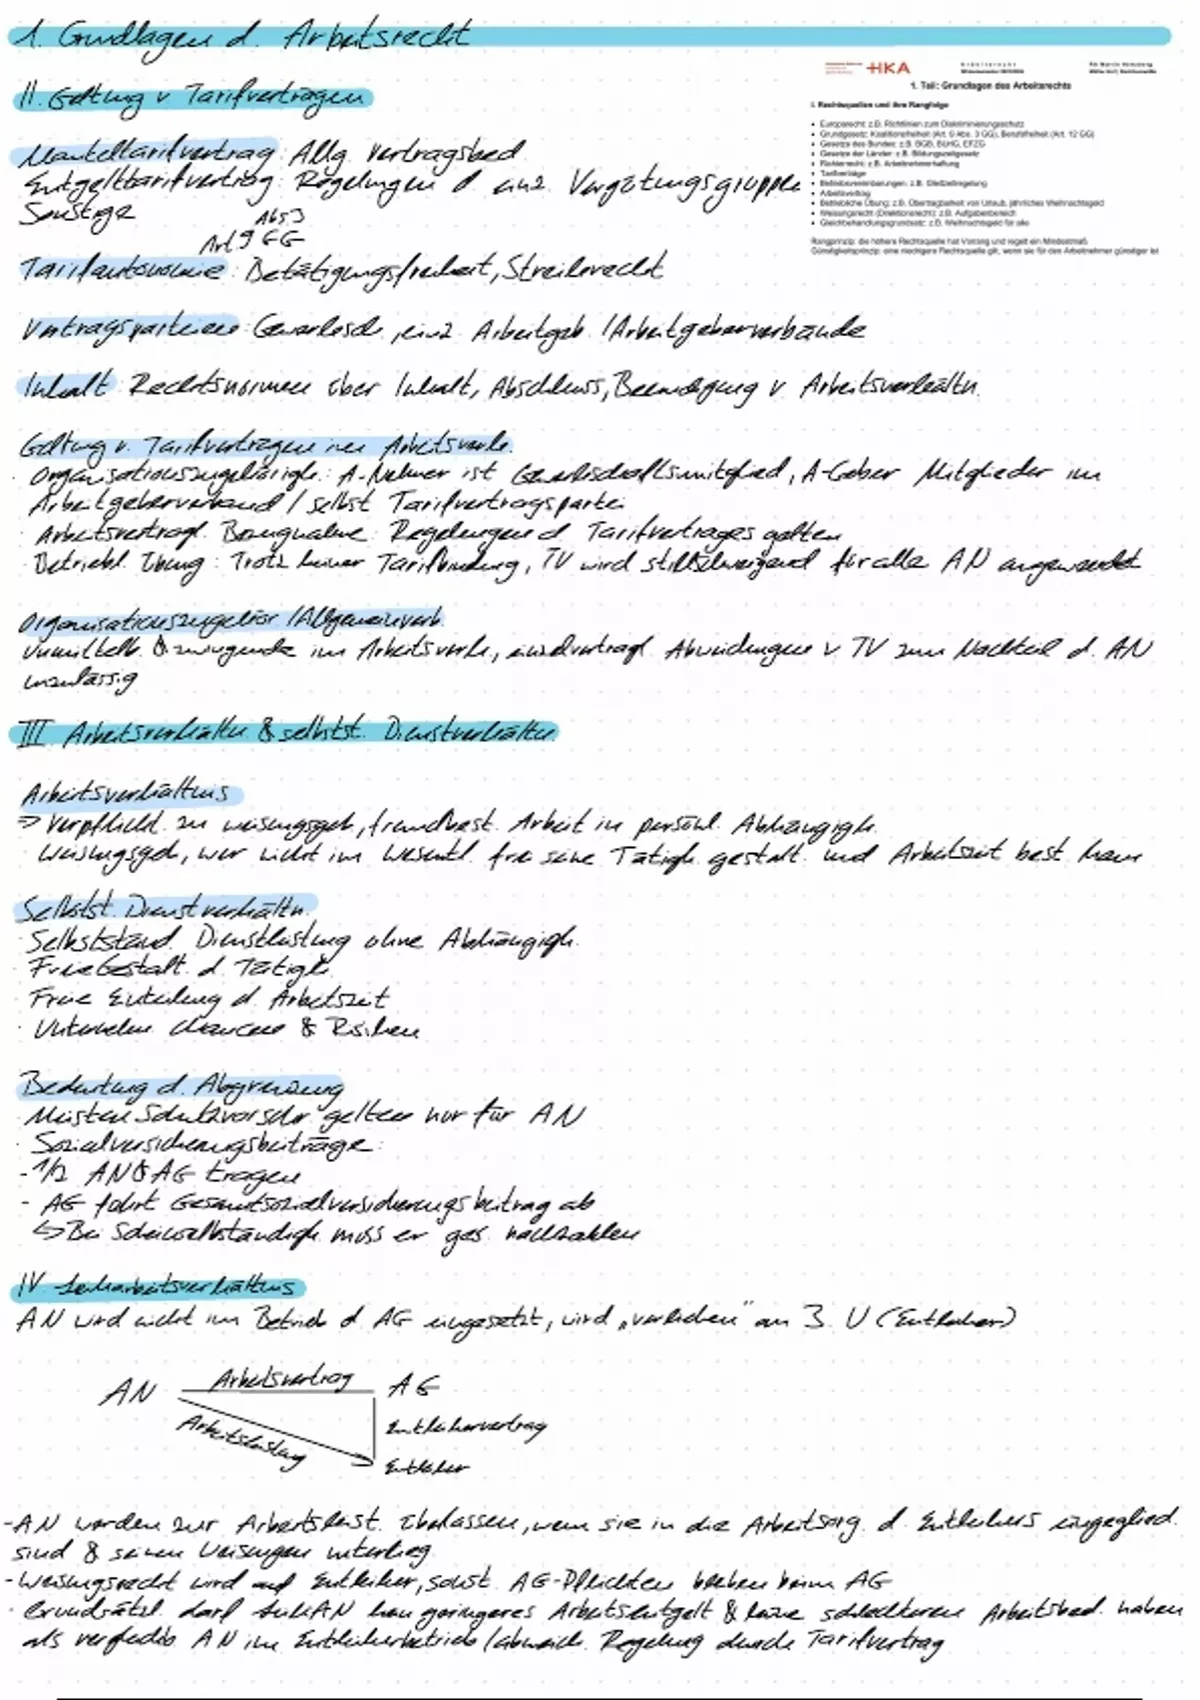 1. Grundlagen d. Arbeitsrecht
HKA
1. Teil: Grundlagen des Arbeitsrechts
I. Rechtsquellen und ihre Rangfolge
• Europarecht: z.B. Richtlinien zum Diskriminierungsschutz
• Grundgesetz: Koalitionsfreiheit (Art. 9 Abs. 3 GG), Berufsfreiheit (Art. 12 GG)
• Gesetze des Bundes: z.B. BGB, BUrlG, EFZG
• Gesetze der Länder: z.B. Bildungszeitgesetz
• Richterrecht: z.B. Arbeitnehmerhaftung
• Tarifverträge
• Betriebsvereinbarungen: z.B. Gleitzeitregelung
• Arbeitsvertrag
• Betriebliche Übung: z.B. Übertragbarkeit von Urlaub, jährliches Weihnachtsgeld
• Weisungsrecht (Direktionsrecht): z.B. Aufgabenbereich
• Gleichbehandlungsgrundsatz: z.B. Weihnachtsgeld für alle
Rangprinzip: die höhere Rechtsquelle hat Vorrang und regelt ein Mindestmaß
Günstigkeitsprinzip: eine niedrigere Rechtsquelle gilt, wenn sie für den Arbeitnehmer günstiger ist
II. Geltung v Tarifverträgen
Manteltarifvertrag: Allg. Vertragsbed.
Entgelttarifvertrag: Regelungen d. einz. Vergütungsgruppen
Sonstige
Abs 3
Art 9 GG
Tarifautonomie: Betätigungsfreiheit, Streikrecht
Vertragsparteien: Gewerksch., einz. Arbeitgeb. / Arbeitgeberverbände
Inhalt: Rechtsnormen über Inhalt, Abschluss, Beendigung v Arbeitsverhältn.
Geltung v. Tarifverträgen im Arbeitsverh.
· Organisationszugehörigk.: A-Nehmer ist Gewerkschaftsmitglied, A-Geber Mitglieder im
Arbeitgeberverband / selbst Tarifvertragspartei
· Arbeitsvertragl. Bezugnahme: Regelungen d Tarifvertrages gelten
· Betriebl. Übung: Trotz keiner Tarifbindung, TV wird stillschweigend für alle AN angewendet
Organisationszugehör / Allgemeinverb.
Unmittelb. & zwingende im Arbeitsverh., einzelvertragl Abweichungen v TV zum Nachteil d. AN
unzulässig
III Arbeitsverhältn & selbst. Dienstverhältn
Arbeitsverhältnis
⇒ Verpflicht. zu weisungsgeb., fremdbest. Arbeit in persönl. Abhängigk.
Weisungsgeb., wer nicht im Wesentl. frei seine Tätigk. gestalt. und Arbeitszeit best. kann
Selbstst. Dienstverhältn.
· Selbstständ. Dienstleistung ohne Abhängigk.
· Freie Gestalt. d. Tätigk.
· Freie Einteilung d. Arbeitszeit
· Unternehm. Chancen & Risiken
Bedeutung d. Abgrenzung
· Meisten Schutzvorschr gelten nur für AN
· Sozialversicherungsbeiträge:
- 1/2 AN & AG tragen
- AG führt Gesamtsozialversicherungsbeitrag ab
↳ Bei Scheinselbständigk. muss er ges. nachzahlen
IV Leiharbeitsverhältnis
AN wird nicht im Betrieb d AG eingesetzt, wird „verliehen" an 3. U (Entleiher)
AN Arbeitsvertrag AG
Arbeitsleistung Entleihervertrag
Entleiher
- AN werden zur Arbeitsleist. überlassen, wenn sie in die Arbeitsorg. d. Entleihers eingeglied.
sind & seinen Weisungen unterlieg.
- Weisungsrecht wird auf Entleiher, sonst. AG-Pflichten bleiben beim AG
· Grundsätzl. darf LeihAN kein geringeres Arbeitsentgelt & keine schlechteren Arbeitsbed. haben
als AN im Entleiherbetrieb / abweich. Regelung durch Tarifvertrag